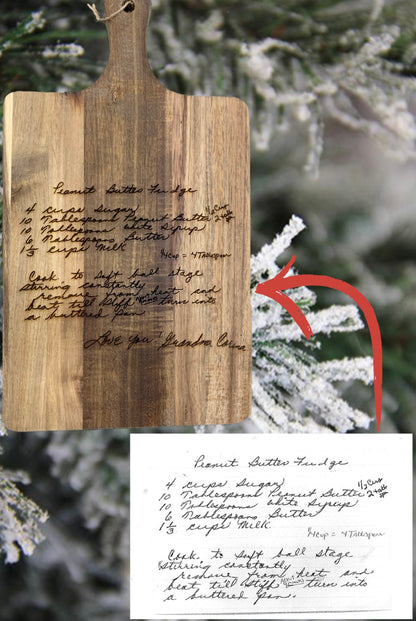 Peanut Butter Fudge
4 cups Sugar
10 Tablespoons Peanut Butter 1/2 Cup 2 tab
10 Tablespoons White Syrup
6 Tablespoons Butter
1 1/3 cups Milk
1/4 cup = 4 Tablespoon
Cook to Soft ball stage
Stirring constantly
remove from heat and
beat till Stiff turn into
a buttered pan.
Love you Grandma
Peanut Butter Fudge
4 cups Sugar
10 Tablespoons Peanut Butter 1/2 Cup 2 tab
10 Tablespoons White Syrup
6 Tablespoons Butter
1 1/3 cups Milk
1/4 cup = 4 Tablespoon
Cook to Soft ball stage
Stirring constantly
remove from heat and
beat till Stiff turn into
a buttered pan.